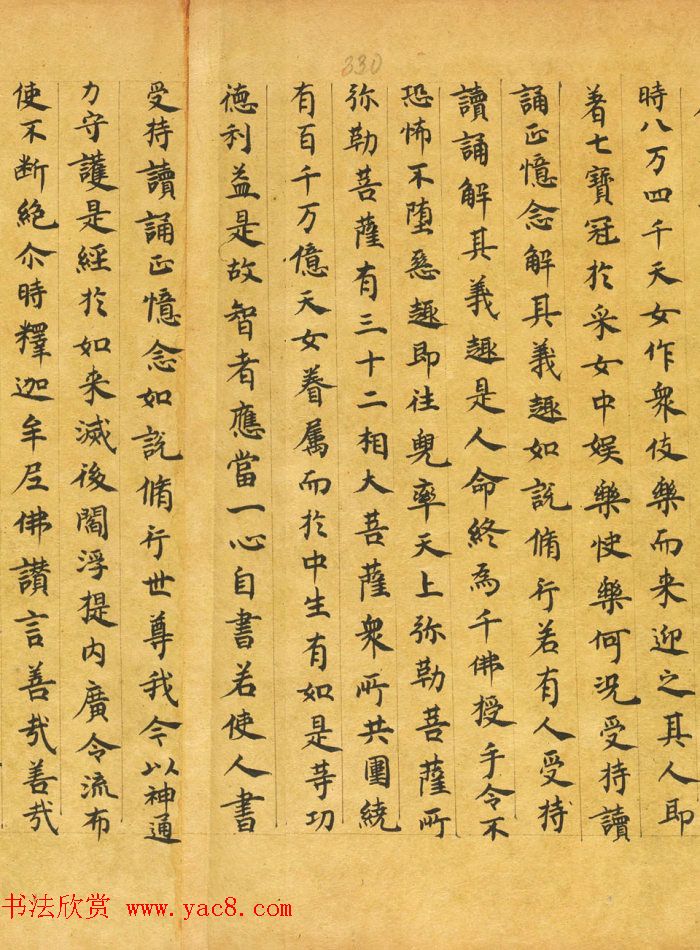 330
時八万四千天女作衆伎樂而来迎之其人即
著七寶冠於采女中娱樂快樂何況受持讀
誦正憶念解其義趣如說脩行若有人受持
讀誦解其義趣是人命終為千佛授手令不
恐怖不墮惡趣即往兜率天上弥勒菩薩所
弥勒菩薩有三十二相大菩薩衆所共圍繞
有百千万億天女眷属而於中生有如是等功
德利益是故智者應當一心自書若使人書
受持讀誦正憶念如說脩行世尊我今以神通
力守護是經於如来滅後閻浮提内廣令流布
使不断絶尒時釋迦牟尼佛讃言善哉善哉
书法欣赏 www.yac8.com